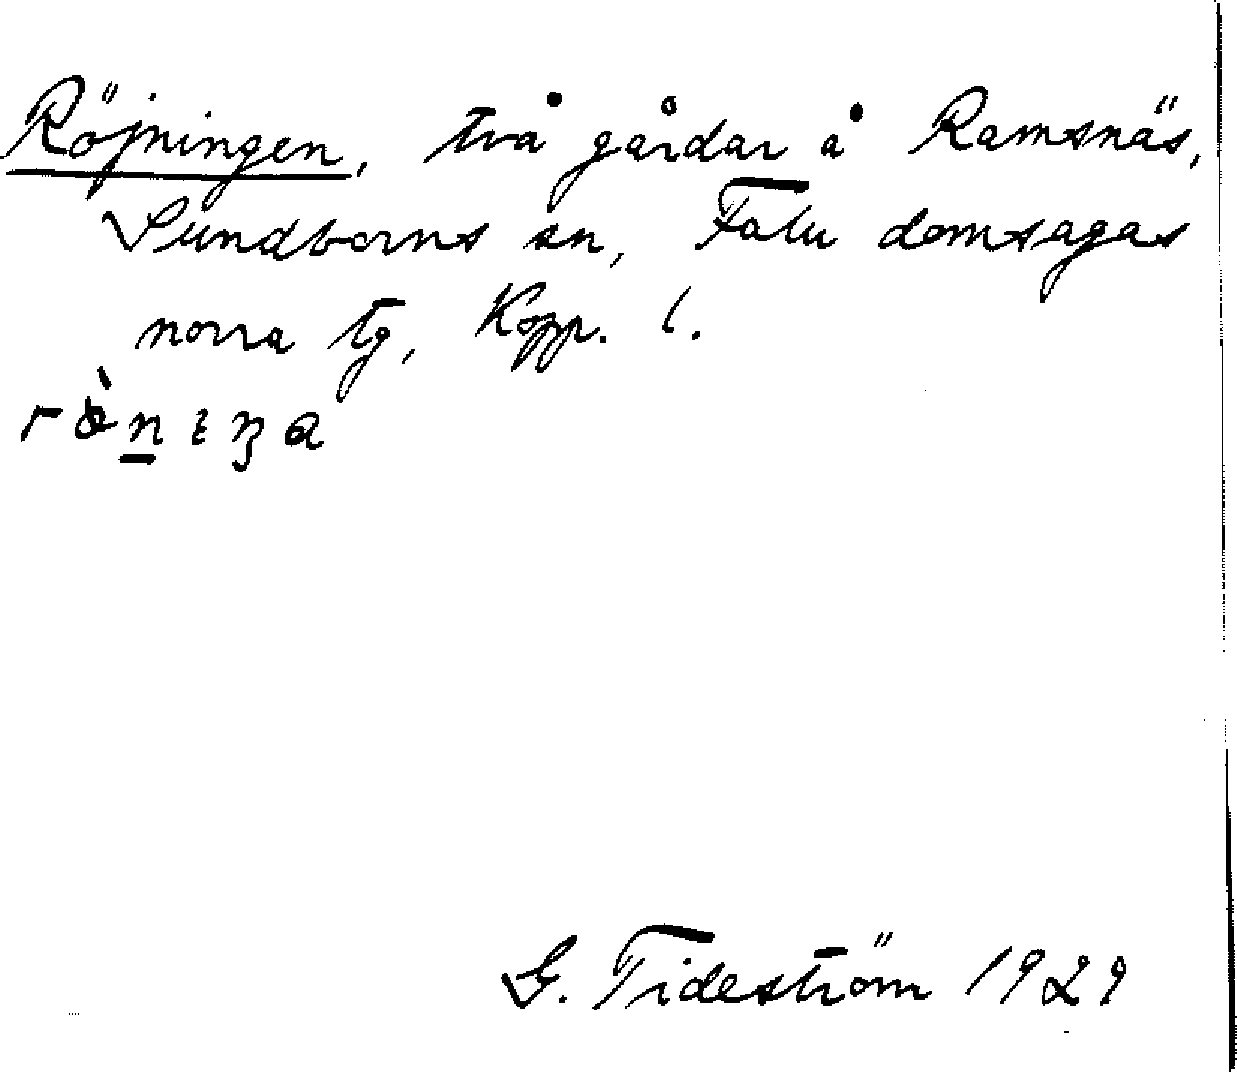 Röjningen, två gårdar å Ramsnäs,
Sundborns sn, Falu domsagas
norra tg, Kopp. l.
G. Tideström 1929